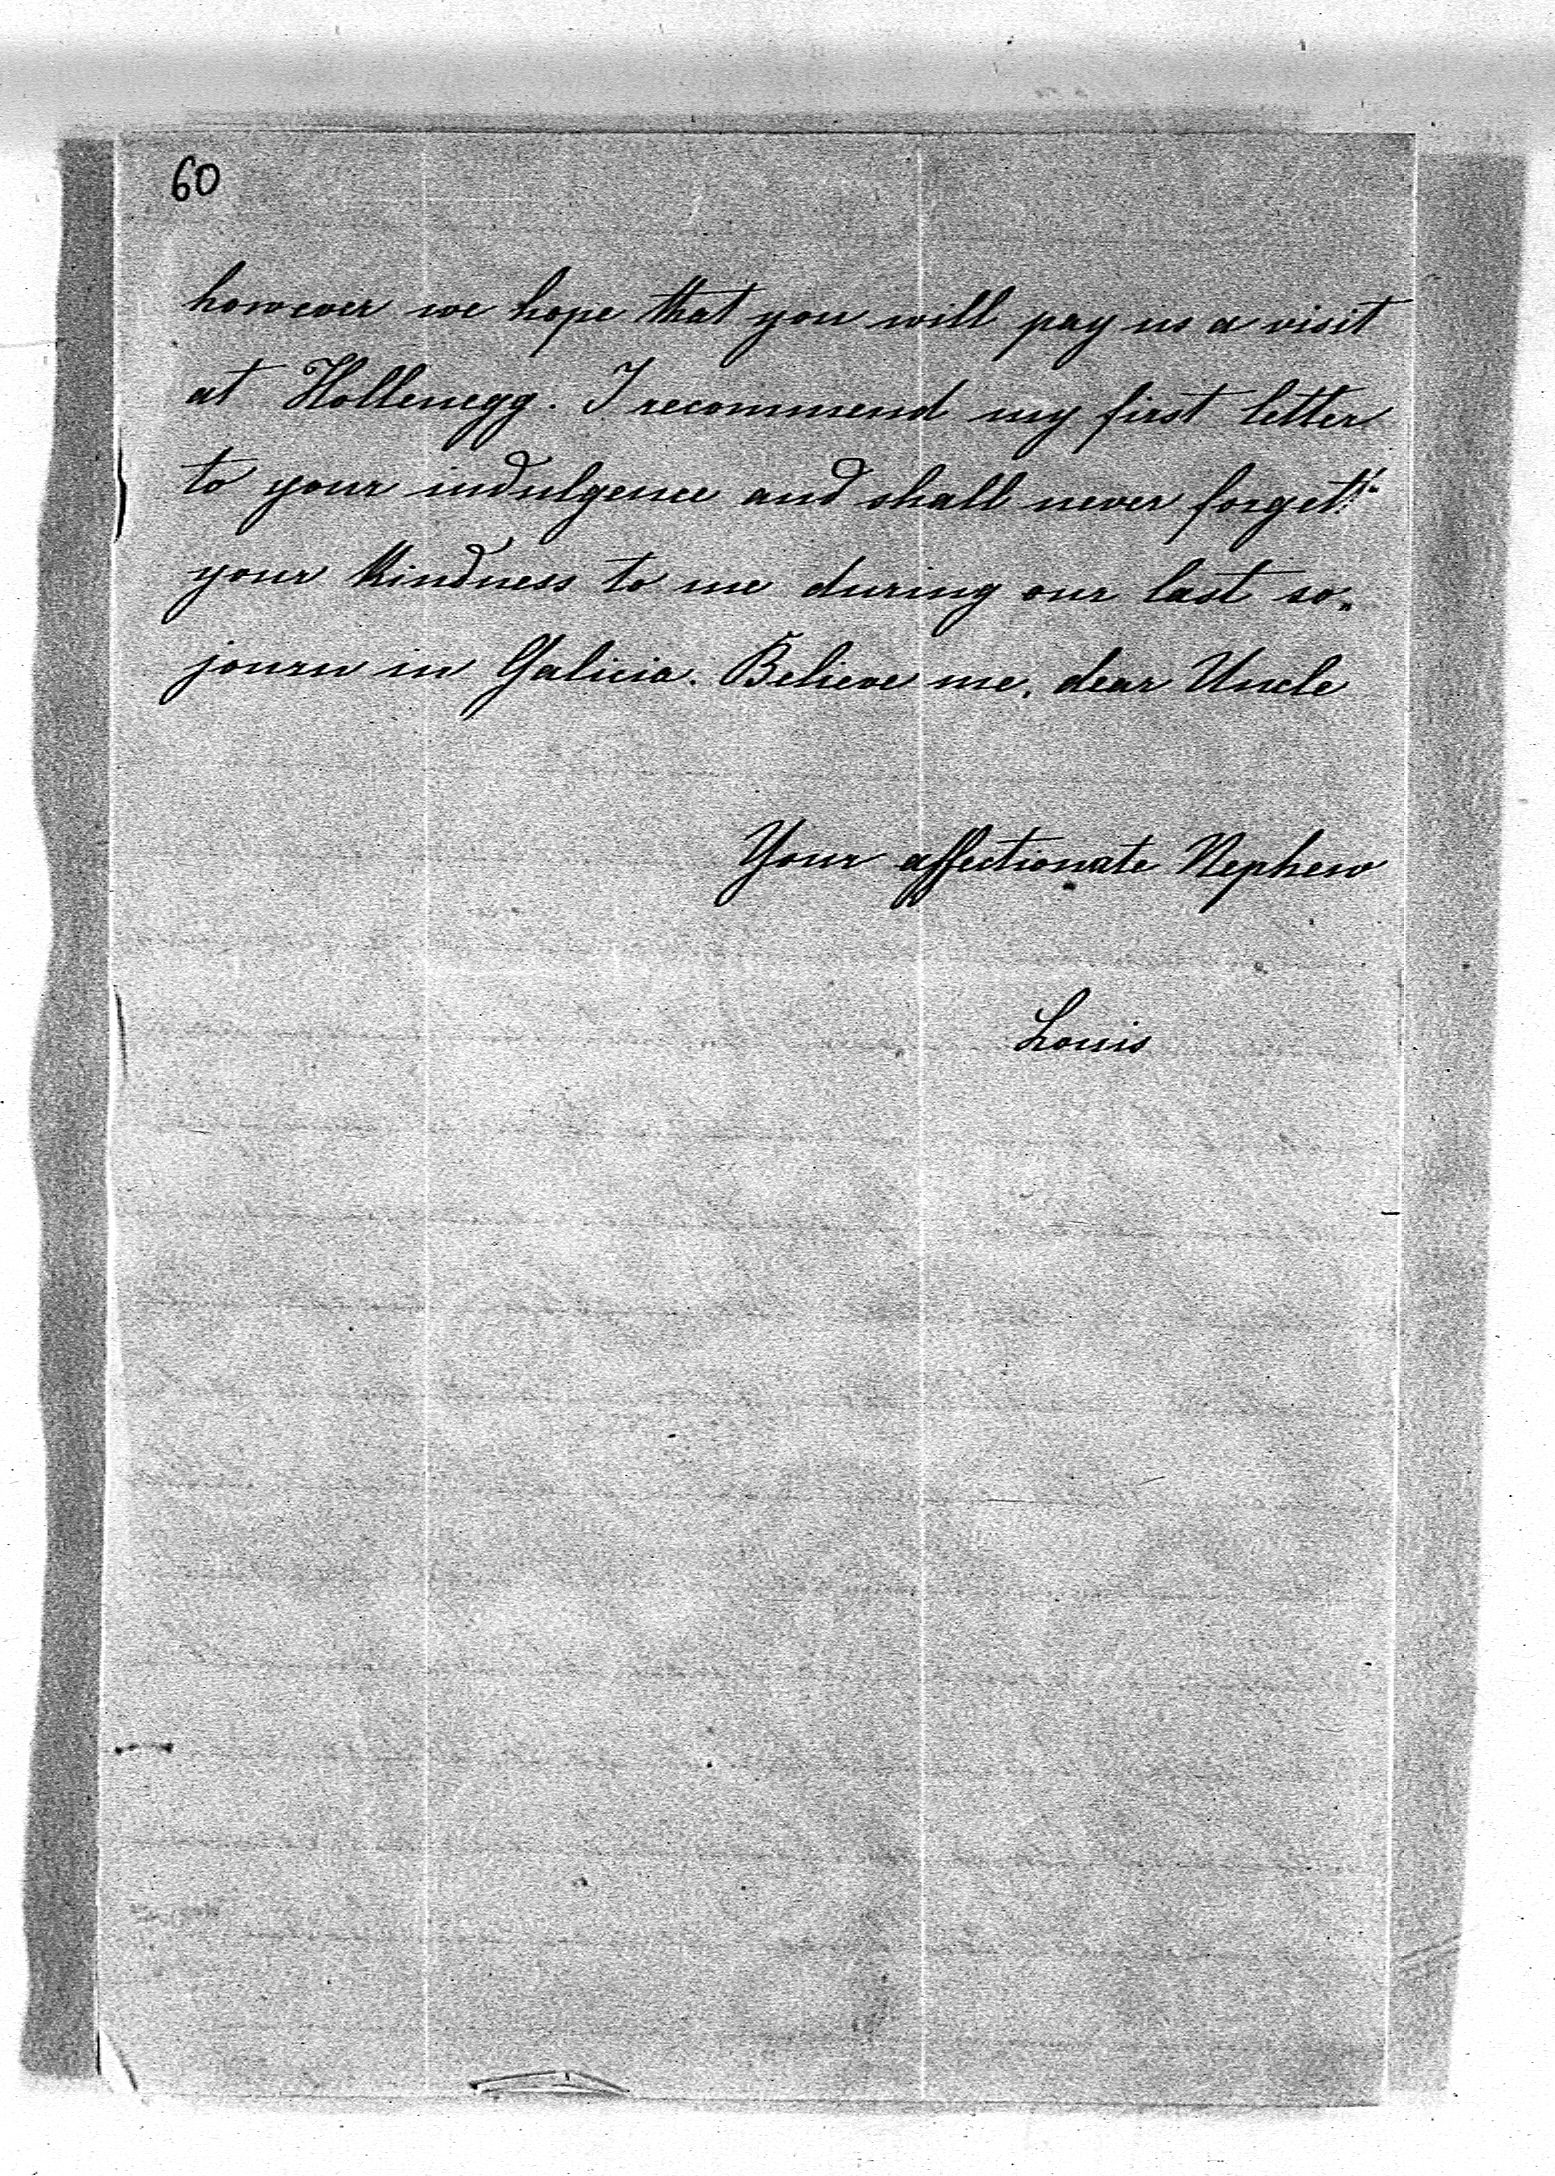 60
however we hope that you will pay us a visit
at Hollenegg. I recommend my first letter
to your indulgence and shall never forget
your kindness to me during our last so„
journ in Galicia. Believe me, dear Uncle
Your affectionate Nephew
Louis